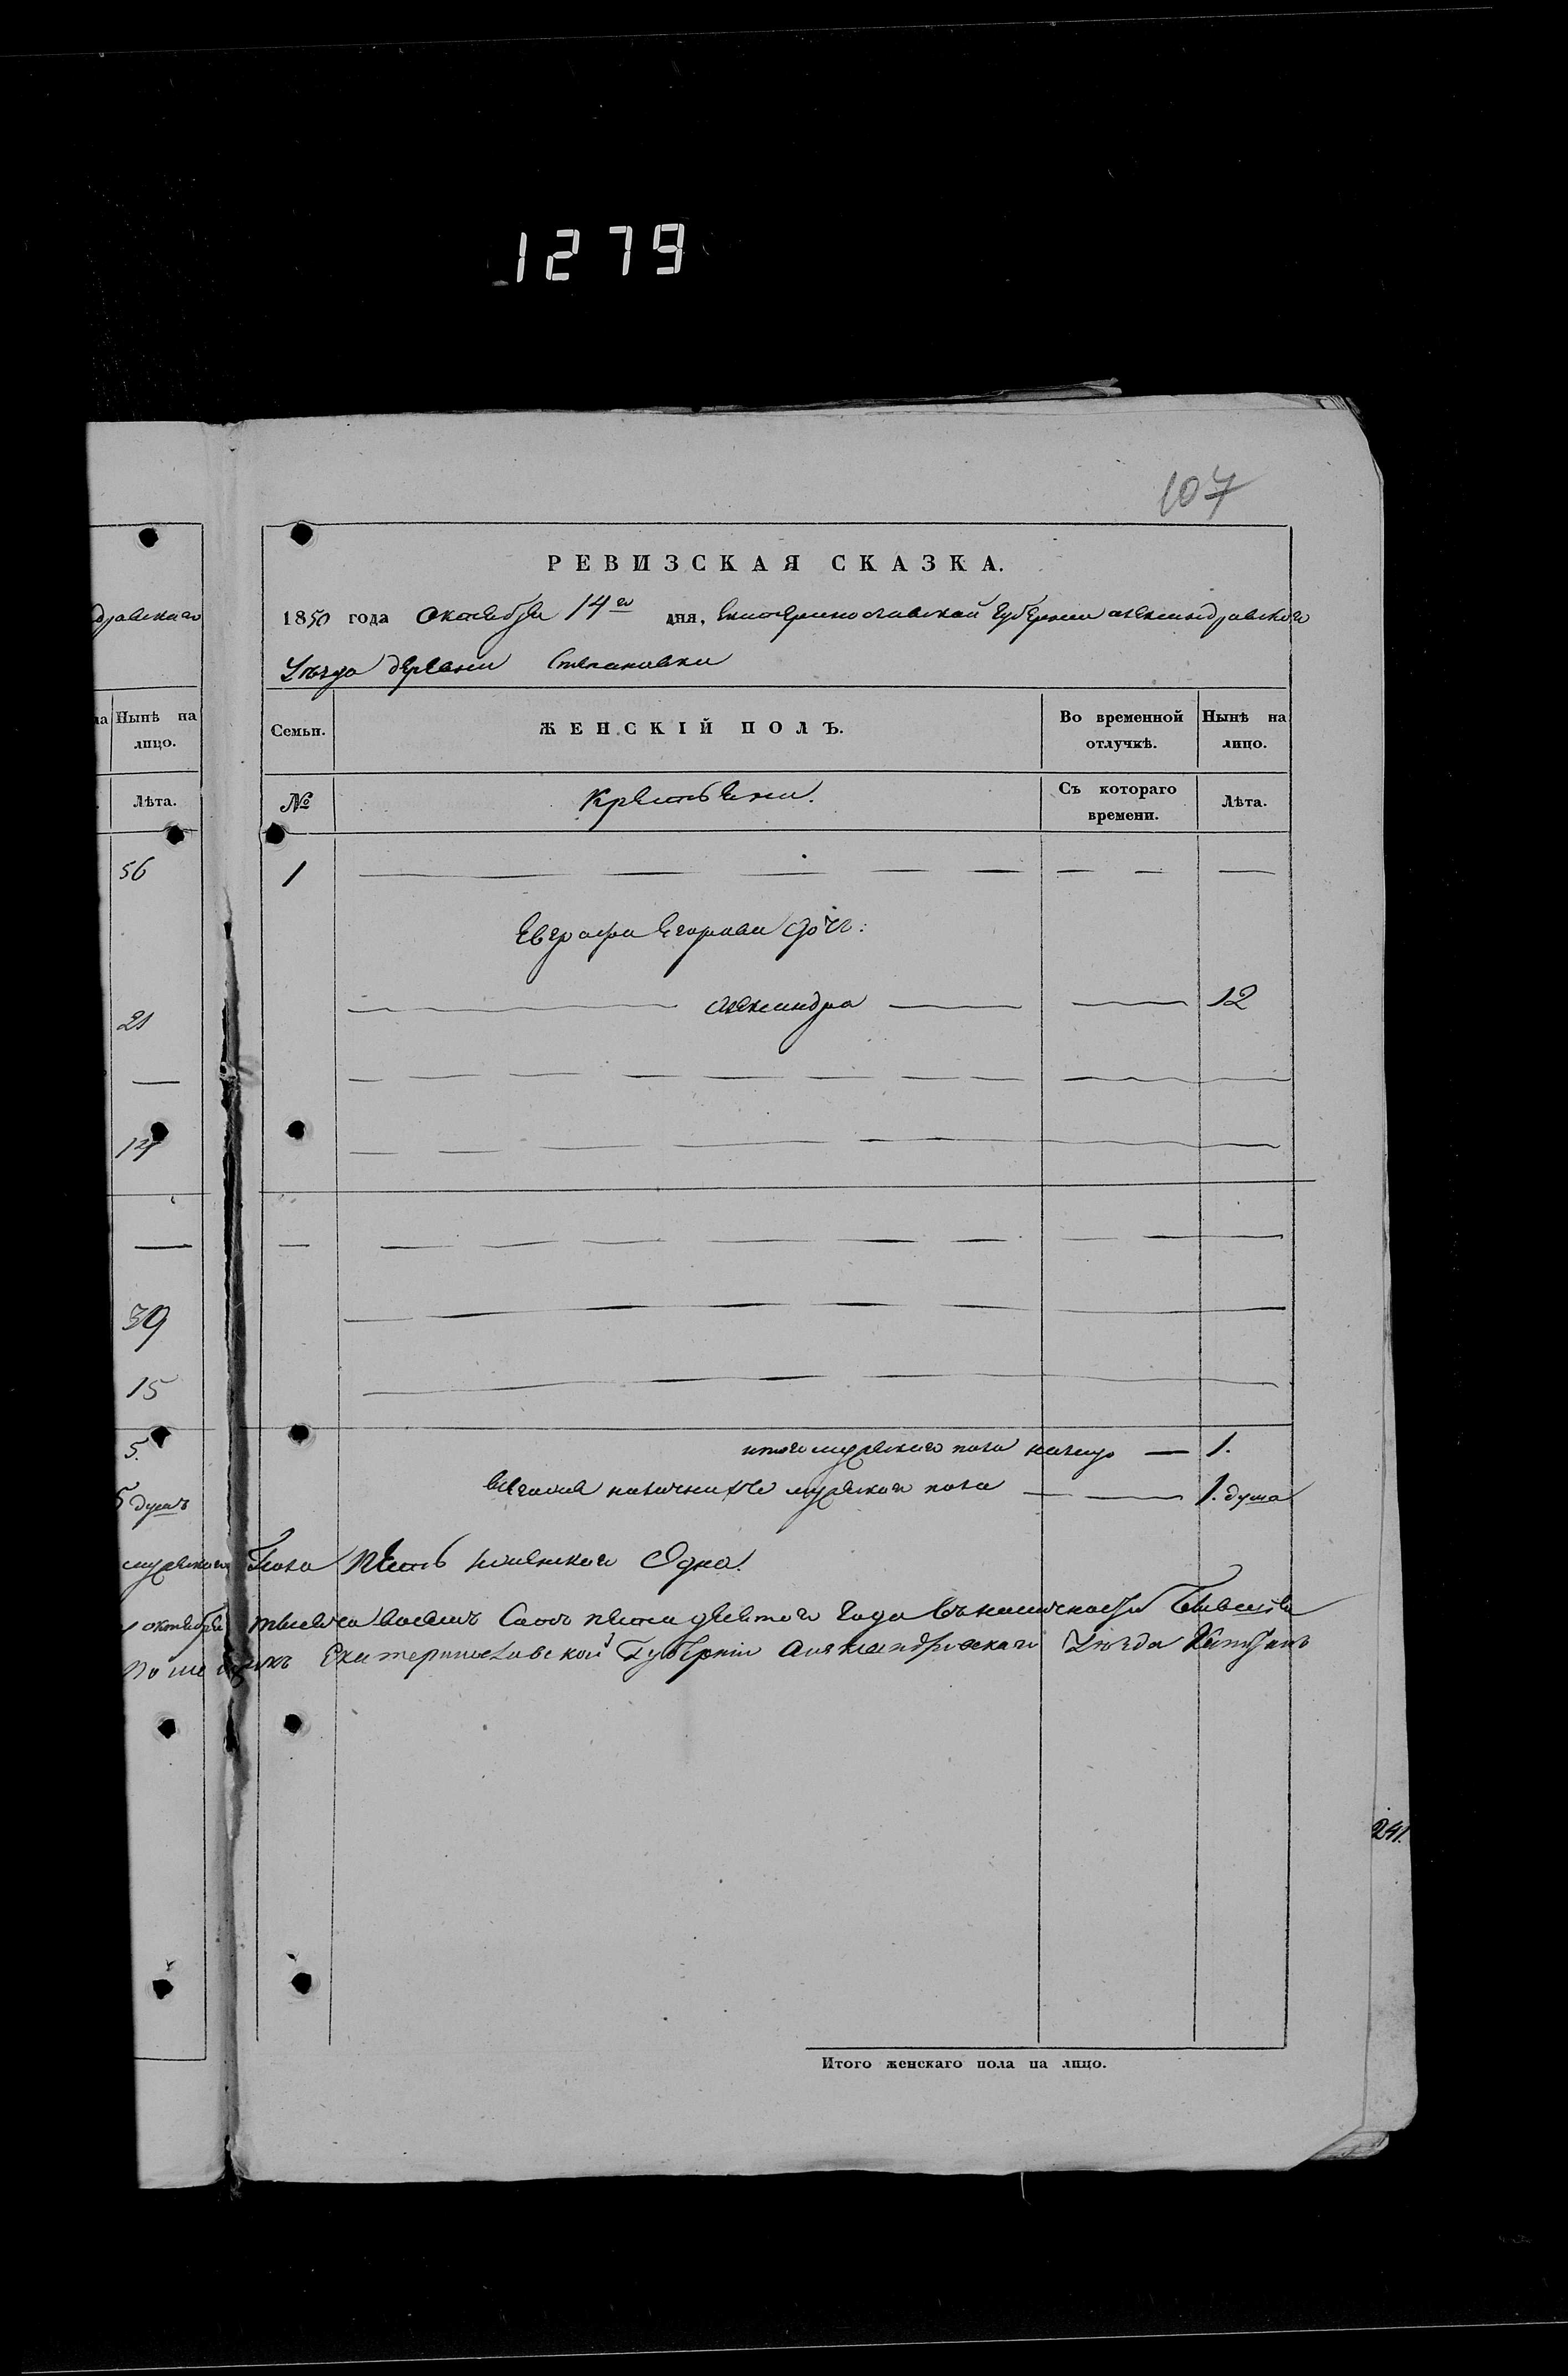 1279
107
РЕВИЗСКАЯ СКАЗКА.
1850 года Октября 14го дня, Екатеринославской Губернии Александравскаго
дравскаго
Уезда деревни Степановки
Нынѣ на лицо.
Семьи.
ЖЕНСКІЙ ПОЛЪ.
Во временной отлучкѣ.
Нынѣ на лицо.
Лѣта.
№
Крестьяни.
Съ котораго времени.
Лѣта.
56
1
Евграфа Егорова дочь:
21
Александра 12
14
39
15
5.
итого мужскаго пола налицо — 1.
5 душъ
наличныхъ мужскаго пола 1. душа
мужскаго Пола пять женскаго Одна.
октября тысяча восемь Сотъ пятидесятого Года въ наличности
Екатеринославской Губерніи Александровскаго Уезда Капитанъ
241.
Итого женскаго пола на лицо.